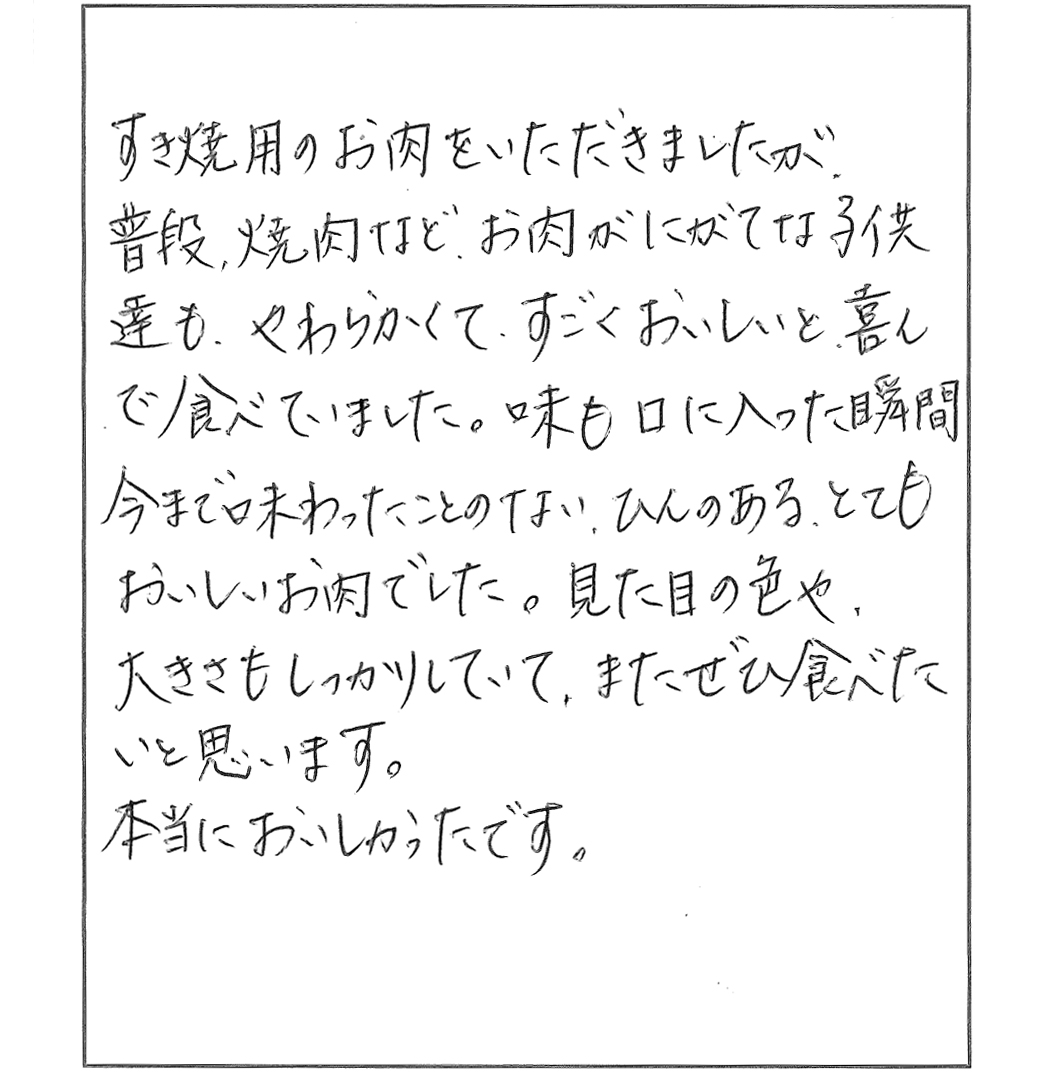 すき焼用のお肉をいただきましたが、
普段、焼肉など、お肉がにがてな子供
達も、やわらかくて、すごくおいしいと、喜ん
で食べていました。味も口に入った瞬間
今まで味わったことのない、ひんのある、とても
おいしいお肉でした。見た目の色や、
大きさもしっかりしていて、またぜひ食べた
いと思います。
本当においしかったです。